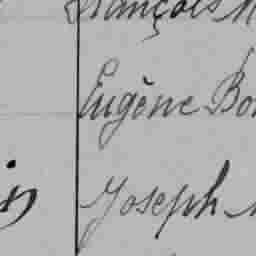 François
Eugène Bo
Joseph